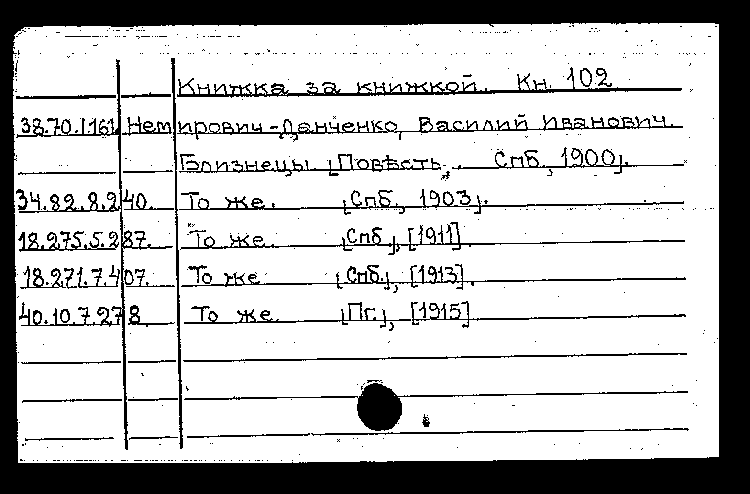 Книжка за книжкой. Кн. 102
38.70.1.161. Немирович-Данченко, Василий Иванович.
Близнецы [Повѣсть]. Спб., 1900].
34.82.8.240. То же. [Спб., 1903].
18.275.5.287. То же. [Спб.], [1911]
18.271.7.407. То же [Спб.], [1913].
40.10.7.278 То же. [Пг.], [1915]